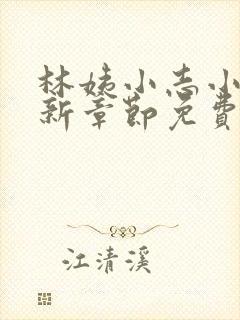 林姨小志小
新章節免費
江清溪